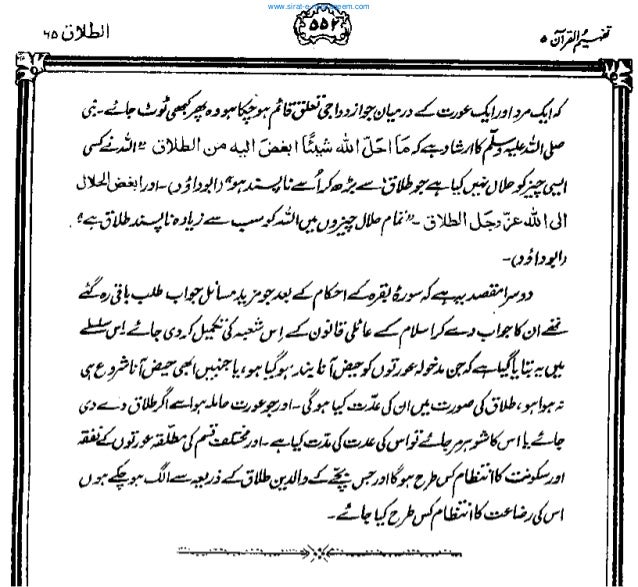 www.sirat-e-mustaqeem.com
تفہیم القرآن ۵
۵۵۲
الطلاق ۶۵
کہ ایک مرد اور ایک عورت کے درمیان جو ازدواجی تعلق قائم ہو چکا ہو وہ پھر کبھی ٹوٹ جائے۔ نبی
صلی اللہ علیہ وسلم کا ارشاد ہے کہ مَا احلّ اللہ شیئًا ابغض الیہ من الطلاق "اللہ نے کسی
ایسی چیز کو حلال نہیں کیا ہے جو طلاق سے بڑھ کر اُسے ناپسند ہو" (ابوداؤد)۔ اور ابغض الحلال
الی اللہ عزّ وجل الطلاق۔ "تمام حلال چیزوں میں اللہ کو سب سے زیادہ ناپسند طلاق ہے"
(ابوداؤد)۔
دوسرا مقصد یہ ہے کہ سورۂ بقرہ کے احکام کے بعد جو مزید مسائل جواب طلب باقی رہ گئے
تھے ان کا جواب دے کر اسلام کے عائلی قانون کے اِس شعبہ کی تکمیل کر دی جائے اِس سلسلے
میں یہ بتایا گیا ہے کہ جن مدخولہ عورتوں کو حیض آنا بند ہو گیا ہو، یا جنہیں ابھی حیض آنا شروع ہی
نہ ہوا ہو، طلاق کی صورت میں ان کی عدّت کیا ہوگی۔ اور جو عورت حاملہ ہو اسے اگر طلاق دے دی
جائے یا اس کا شوہر مر جائے تو اس کی عدت کی مدّت کیا ہے۔ اور مختلف قسم کی مطلقہ عورتوں کے نفقہ
اور سکونت کا انتظام کس طرح ہوگا اور جس بچّے کے والدین طلاق کے ذریعہ سے الگ ہو چکے ہوں
اس کی رضاعت کا انتظام کس طرح کیا جائے۔